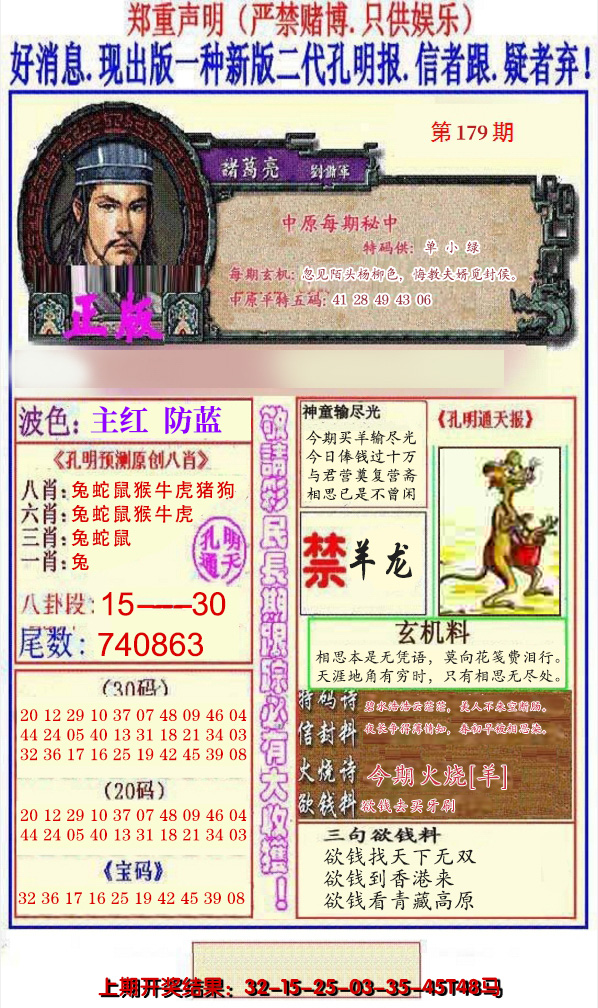 郑重声明（严禁赌博.只供娱乐）
好消息.现出版一种新版二代孔明报.信者跟.疑者弃!
第179期
諸葛亮 劉備軍
中原每期秘中
特码供：单小绿
每期玄机：忽见陌头杨柳色，悔教夫婿觅封侯。
中原平特五码：41 28 49 43 06
正版
波色：主红 防蓝
《孔明预测原创八肖》
八肖：兔蛇鼠猴牛虎猪狗
六肖：兔蛇鼠猴牛虎
三肖：兔蛇鼠
一肖：兔
孔明
通天
八卦段：15——30
尾数：740863
（30码）
20 12 29 10 37 07 48 09 46 04
44 24 05 40 13 31 18 21 34 03
32 36 17 16 25 19 42 45 39 08
（20码）
20 12 29 10 37 07 48 09 46 04
44 24 05 40 13 31 18 21 34 03
《宝码》
32 36 17 16 25 19 42 45 39 08
敬請彩民長期跟踪必有大收獲！
神童输尽光
今期买羊输尽光
今日俸钱过十万
与君营奠复营斋
相思已是不曾闲
《孔明通天报》
禁羊龙
玄机料
相思本是无凭语，莫向花笺费泪行。
天涯地角有穷时，只有相思无尽处。
特码诗 碧水浩浩云茫茫，美人不来空断肠。
信封料 夜长争得薄情知，春初早被相思染。
火烧诗 今期火烧[羊]
欲钱料 欲钱去买牙刷
三句欲钱料
欲钱找天下无双
欲钱到香港来
欲钱看青藏高原
上期开奖结果：32-15-25-03-35-45T48马